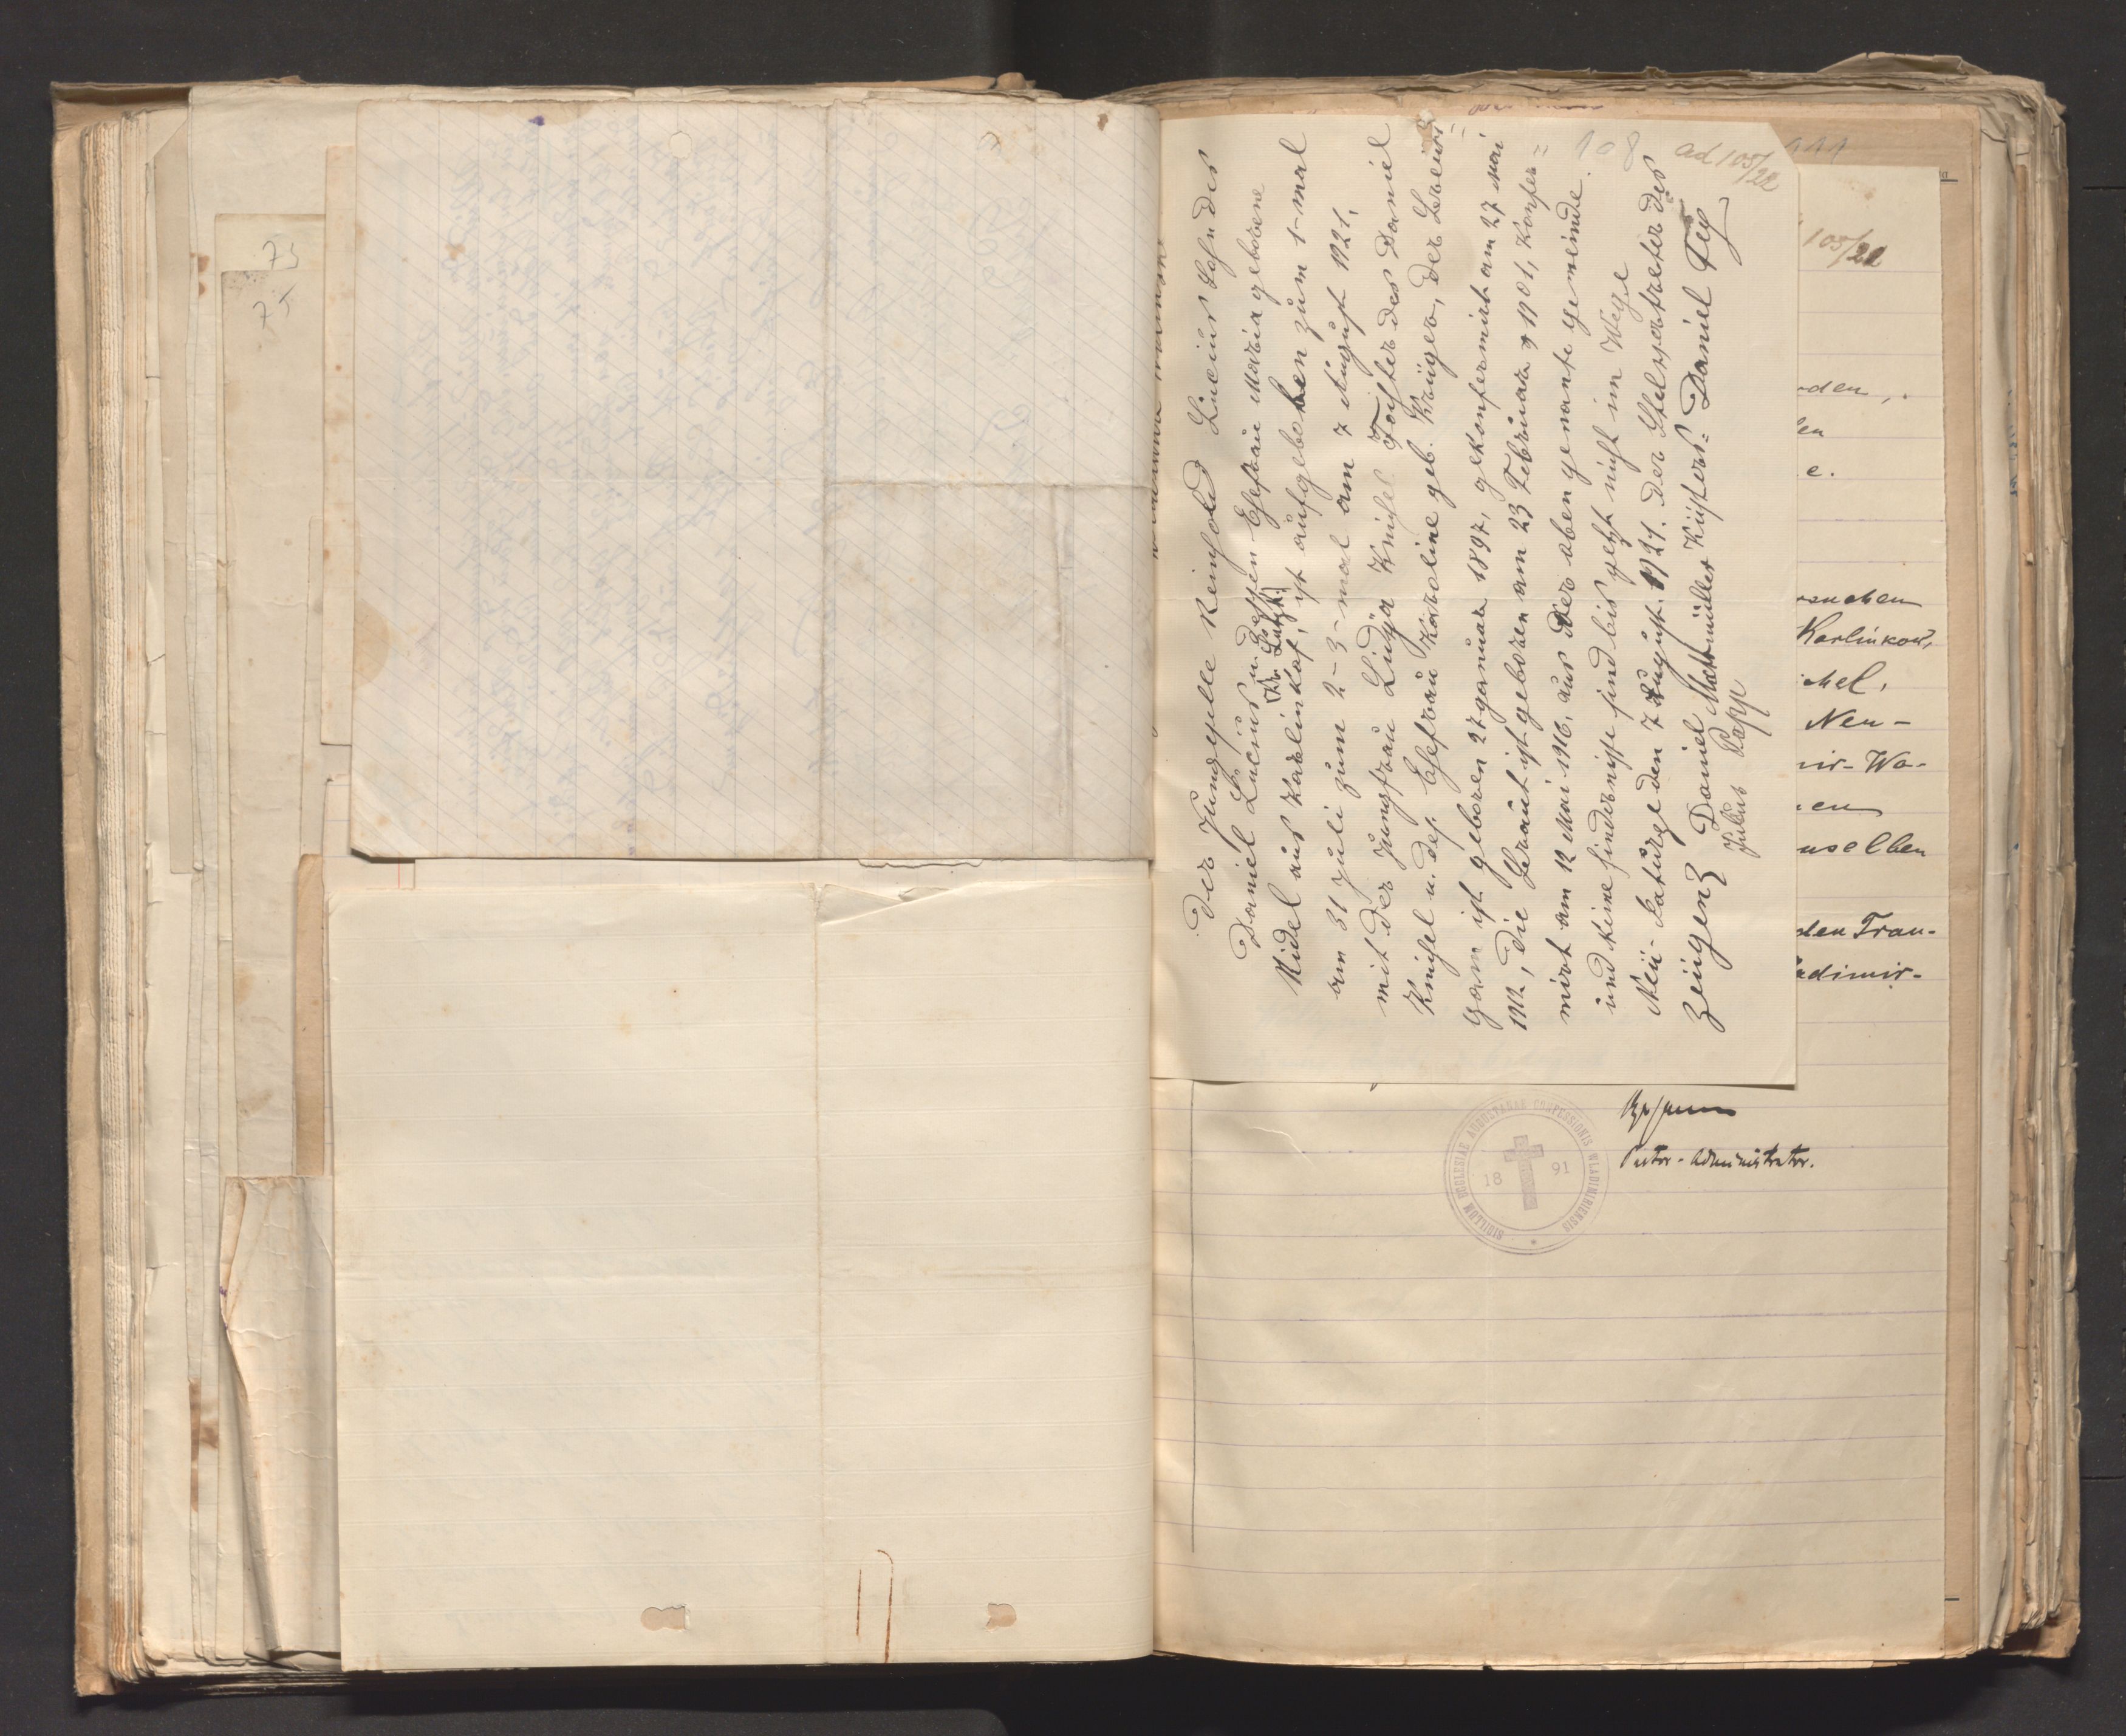 75
75
108
ad 105/22
111
105/22
Der Jungeselle Reinhold Lucius Sohn des
Daniel Lucius u. dessen Ehefrau Maria geborene
(Kr. Lutzk.)
Nidel aus Karlinkof, ist aufgeboten zum 1-mal
am 31 Juli zum 2-3-mal am 7 August 1921,
mit der Jungfrau Lidja Knichel Tochter des Daniel
Knichel u. des. Ehefrau Karoline geb. Krüger, der Breut=
gam ist geboren 27 Januar 1897, gekonfermirt am 27 Mai
1912, die Braut ist geboren am 23 Februar 1901, Konfer=
mirt am 12 Mai 1916, aus der oben genante gemeinde.
und keine hindernisse sind bis jetzt nicht im Wege
Neu- den 7 August. 1921. der Stelvertreter des
Zeugen Daniel Küsters= Daniel Fey
Julius Papp
den,.
len
e.
Karlinkow,
chel,
Neu-
ir-Wo-
en
nselben
den Trau-
adimir-
SIGILLUM ECCLESIAE AUGUSTANAE CONFESSIONIS WLADIMIRIENSIS
18 91
Pastor-Administrator.